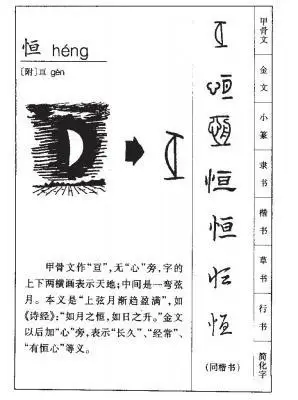 恒 héng
〔附〕亘 gèn
甲骨文作“亙”,无“心”旁,字的
上下两横画表示天地;中间是一弯
弦月。本义是“上弦月渐趋盈满”,如
《诗经》:“如月之恒,如日之升。”金文
以后加“心”旁,表示“长久”、“经常”、
“有恒心”等义。
恒
恒
恒
恒
(同楷书)
甲骨文
金文
小篆
隶书
楷书
草书
行书
简化字